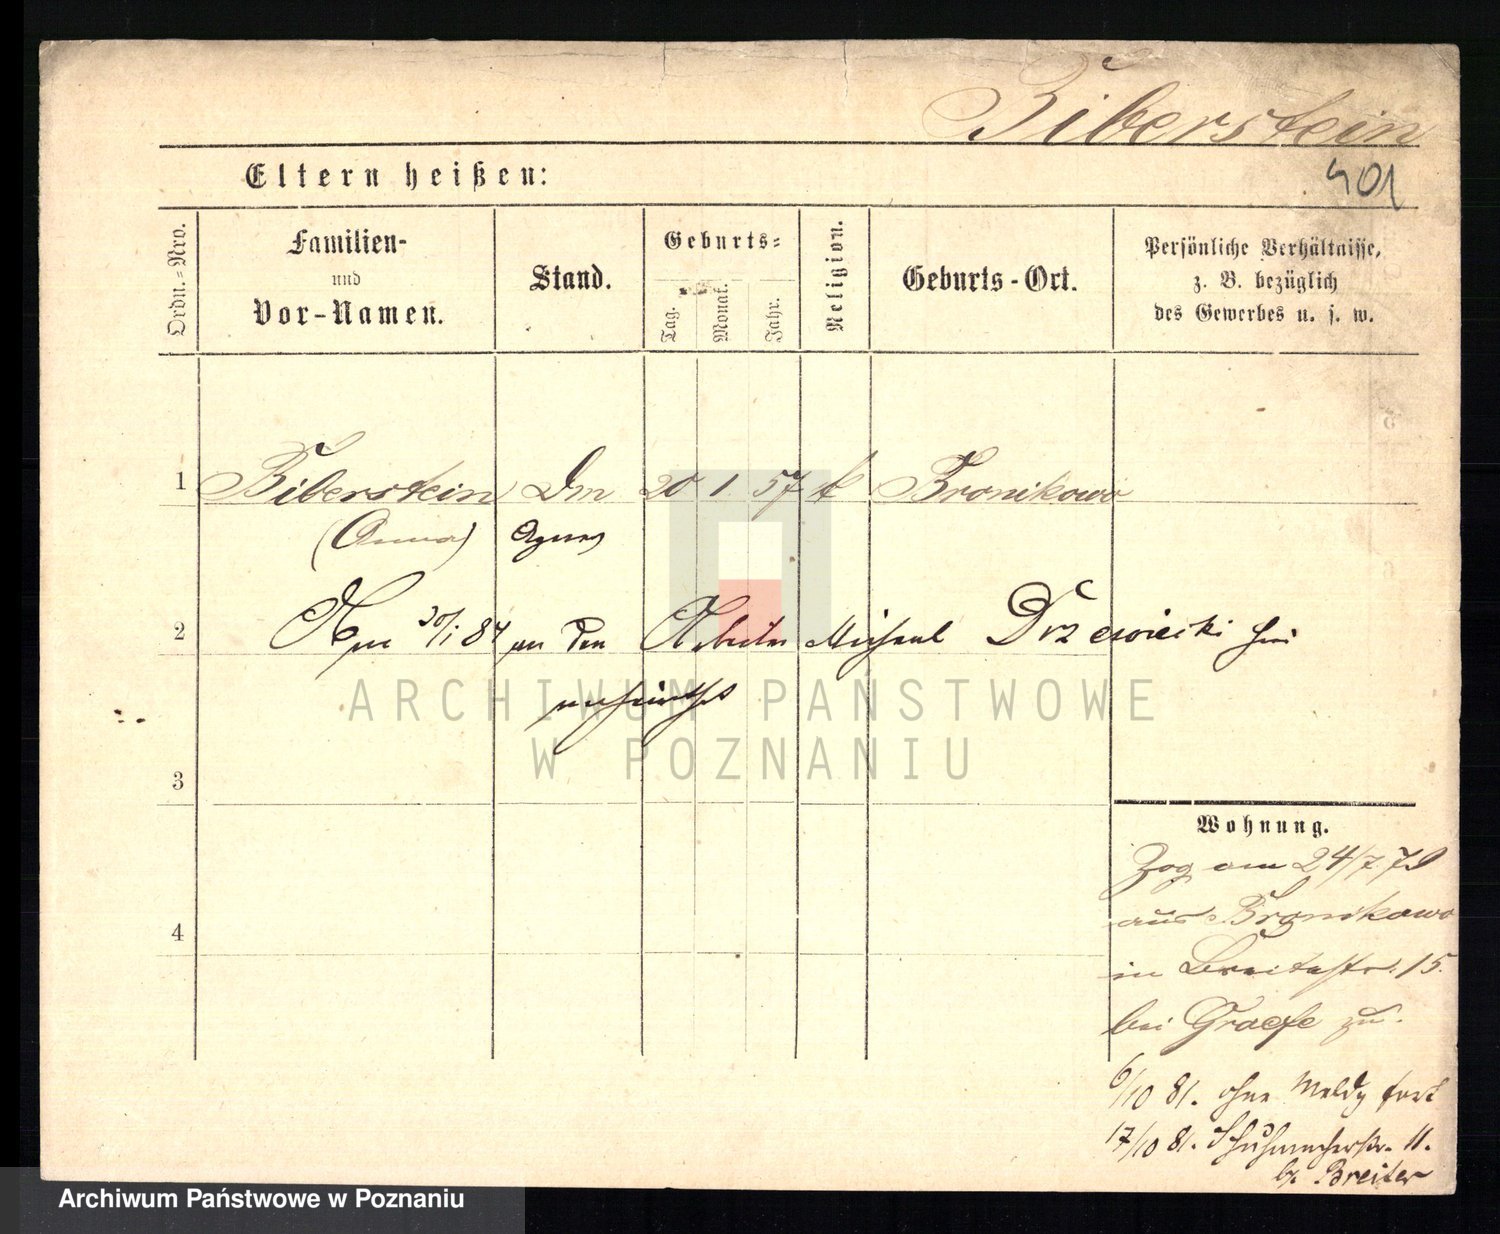 Biberstein
401
Eltern heißen:
Ordn.=Nro.
Familien-
und
Vor-Namen.
Stand.
Geburts=
Tag.
Monat.
Jahr.
Religion.
Geburts-Ort.
Persönliche Verhältnisse,
z. B. bezüglich
des Gewerbes u. s. w.
1 Biberstein Dm 20 1. 57 k Bronikowo
(Anna) Agnes
2 20/1 84 an den Arbeiter Michael Drzewiecki hier
verheirathet
3
4
Wohnung.
Zog am 24/7. 79
aus Bronikowo
in Breitestr. 15.
bei Graefe zu.
6/10 81. ohne Meldg fort
17/10 81. Schuhmacherstr. 11.
b/. Breiter
ARCHIWUM PAŃSTWOWE
W POZNANIU
Archiwum Państwowe w Poznaniu